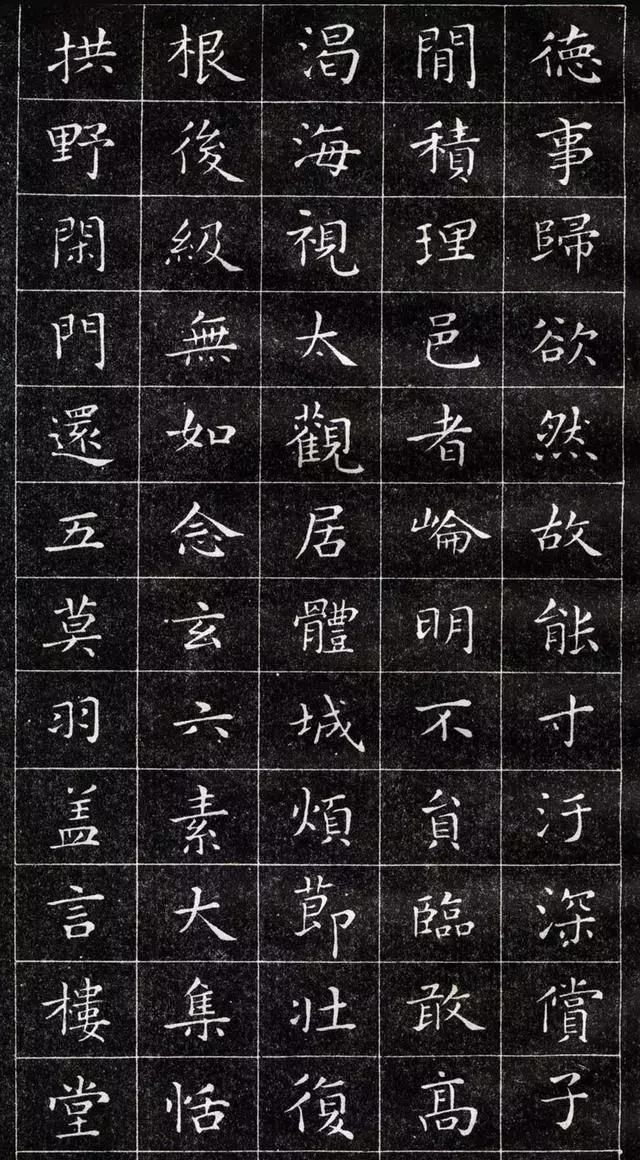 德事歸欲然故能寸汙深償子
閒積理邑者崘明不負臨敢高
渴海視太觀居體城煩節壯復
根後級無如念玄六素大集恬
拱野閑門還五莫羽盖言樓堂